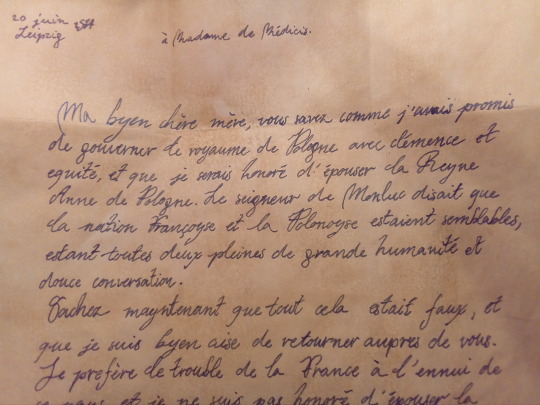 20 juin
Leipzig
à Madame de Médicis.
Ma byen chère mère, vous savez comme j'avais promis
de gouverner le royaume de Pologne avec clémence et
equité, et que je serais honoré d'épouser la Reyne
Anne de Pologne. Le seigneur de Monluc disait que
la nation Françoyse et la Polonoyse estaient semblables,
estant toutes deux pleines de grande humanité et
douce conversation.
Sachez mayntenant que tout cela estait faux, et
que je suis byen aise de retourner aupres de vous.
Je préfère le trouble de la France à l'ennui de
ce pays et je ne suis pas honoré d'épouser la